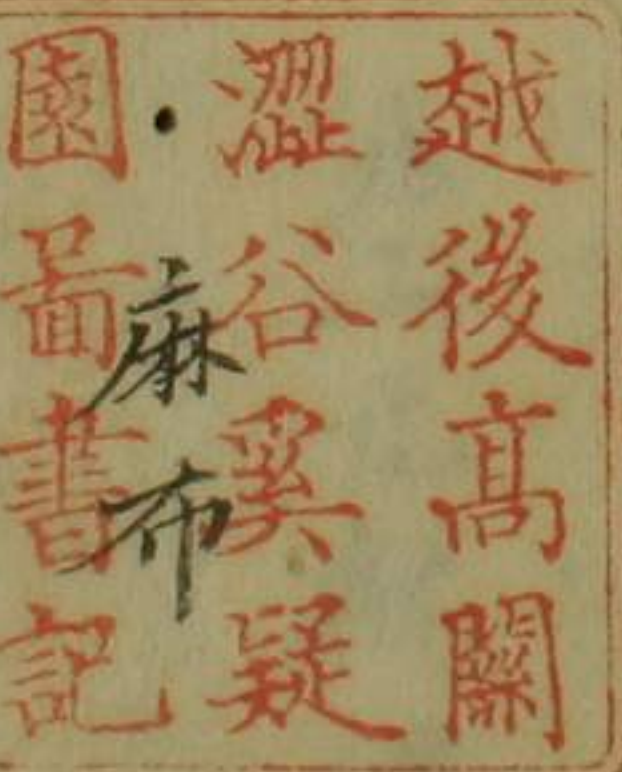 越後高關
澀谷奚疑
園啚書記
麻布